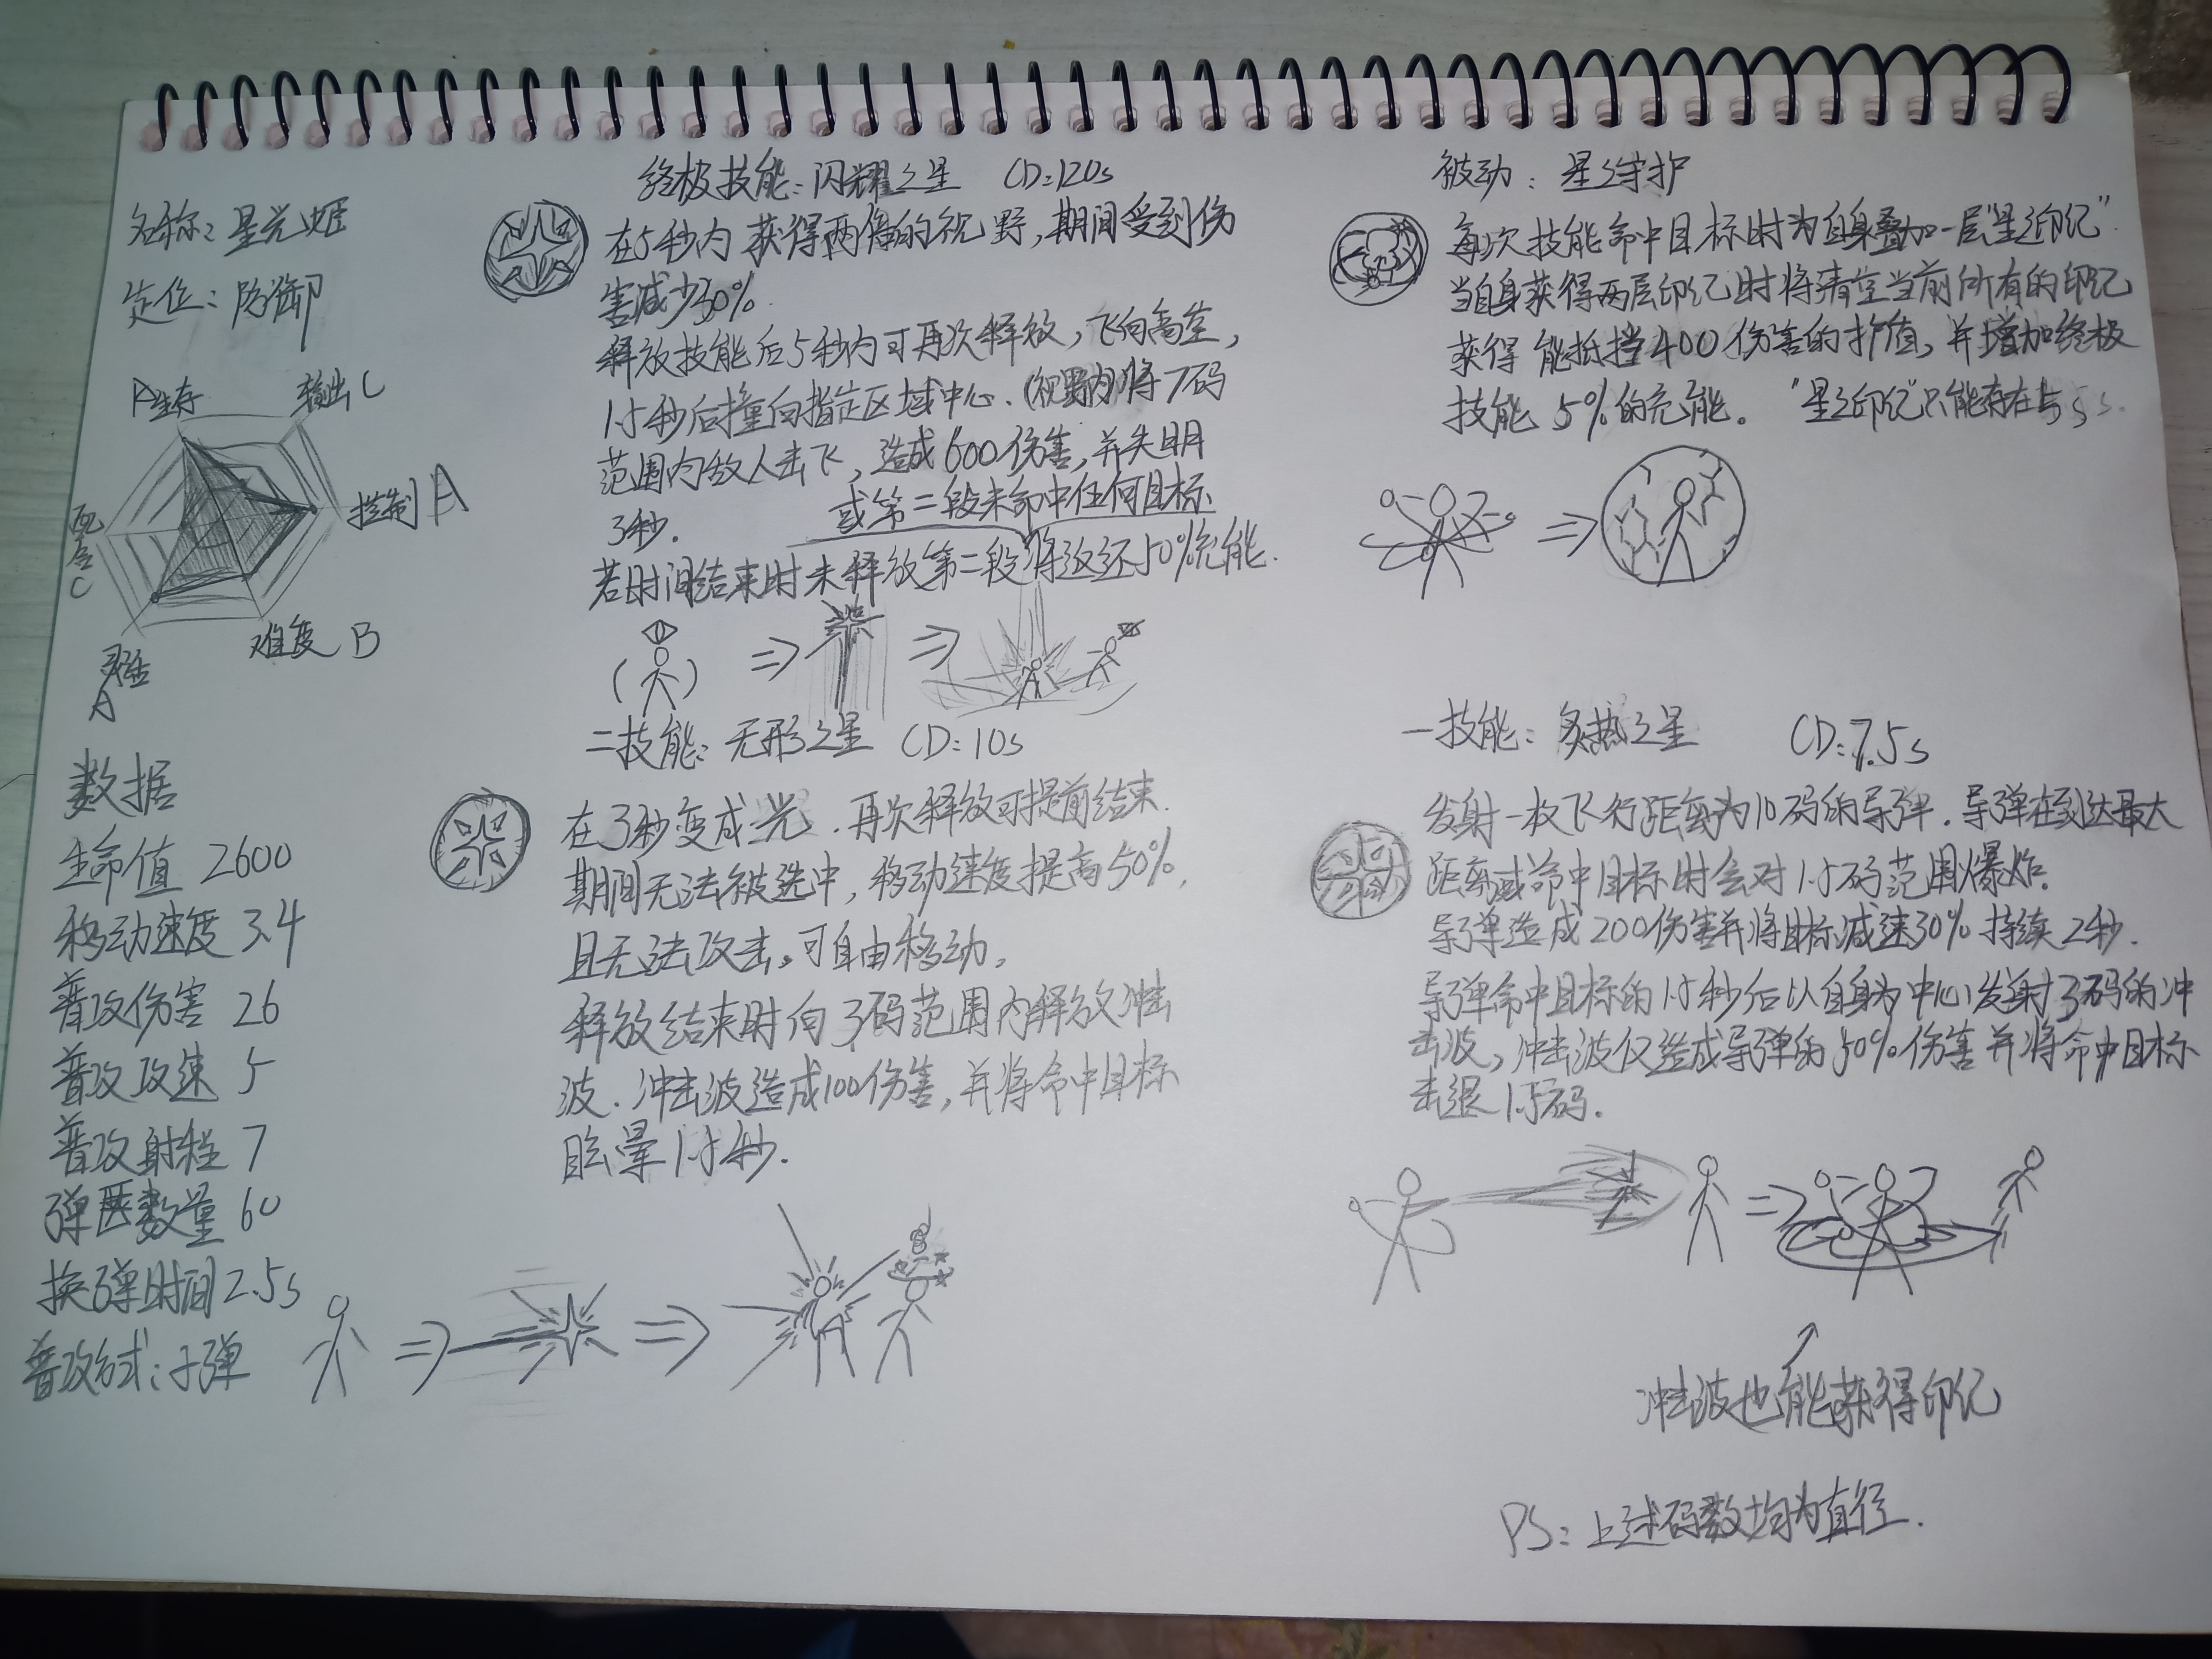 名称：星光姬
定位：防御
A生存
输出C
控制A
配合C
难度B
灵活
A
数据
生命值 2600
移动速度 3.4
普攻伤害 26
普攻攻速 5
普攻射程 7
弹匣数量 60
换弹时间 2.5s
普攻方式：子弹
终极技能：闪耀之星 CD:120s
在5秒内获得两倍的视野，期间受到伤
害减少30%.
释放技能后5秒内可再次释放，飞向高空，
1.5秒后撞向指定区域中心.(视野内)将7码
范围内敌人击飞，造成600伤害，并失明
3秒.
或第二段未命中任何目标
若时间结束时未释放第二段将返还50%充能.
二技能：无形之星 CD:10s
在3秒变成光.再次释放可提前结束.
期间无法被选中，移动速度提高50%，
且无法攻击。可自由移动。
释放结束时向3码范围内释放冲击
波.冲击波造成100伤害，并将命中目标
眩晕1.5秒.
被动：星之守护
每次技能命中目标时为自身叠加一层“星之印记”
当自身获得两层印记时将清空当前所有的印记
获得能抵挡400伤害的护值，并增加终极
技能5%的充能。“星之印记”只能存在5s
一技能：炙热之星 CD:7.5s
发射一枚飞行距离为10码的导弹.导弹在到达最大
距离或命中目标时会对1.5码范围爆炸.
导弹造成200伤害并将目标减速30%持续2秒.
导弹命中目标的1.5秒后以自身为中心发射3码的冲
击波，冲击波仅造成导弹的50%伤害并将命中目标
击退1.5码.
冲击波也能获得印记
PS：上述码数均为直径.